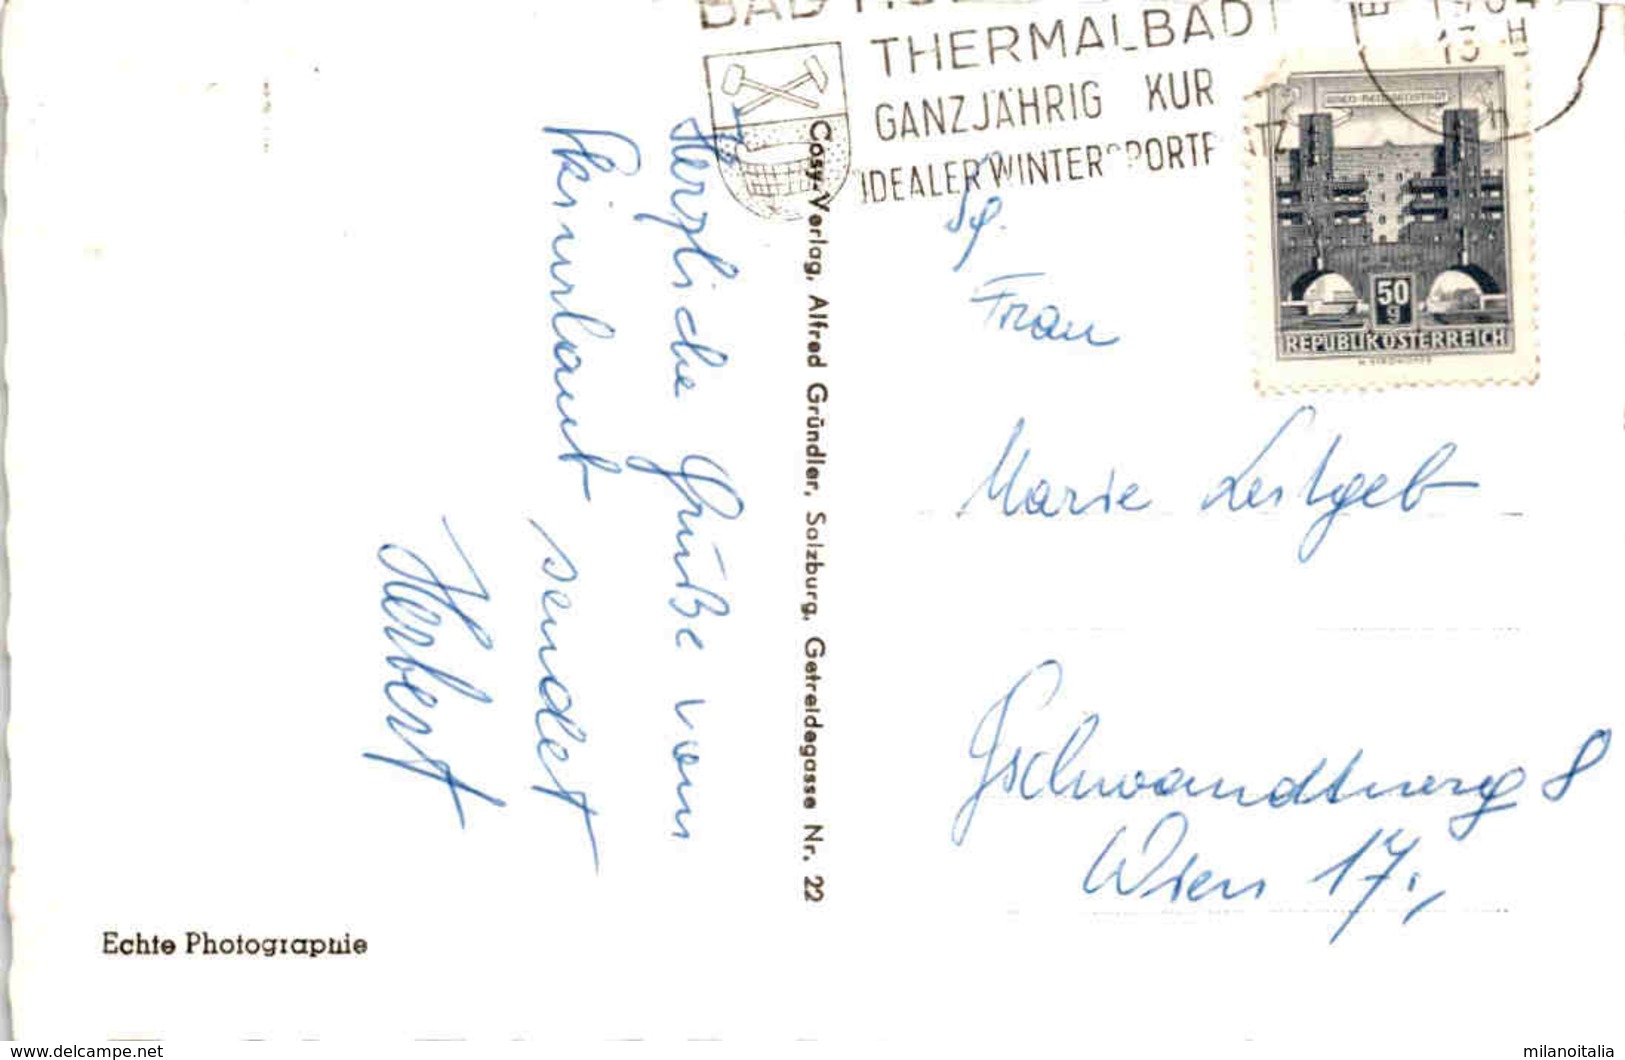 THERMALBAD
GANZJÄHRIG KUR
IDEALER WINTERSPORTPLATZ
13 H
50
g
REPUBLIK ÖSTERREICH
Herzliche Grüße vom
Skiurlaub sendet
Herbert
Cosy-Verlag, Alfred Gründler, Salzburg, Getreidegasse Nr. 22
Frau
Marie Leitgeb
Gschwandnerg 8
Wien 17.,
Echte Photographie
www.delcampe.net
milanoitalia